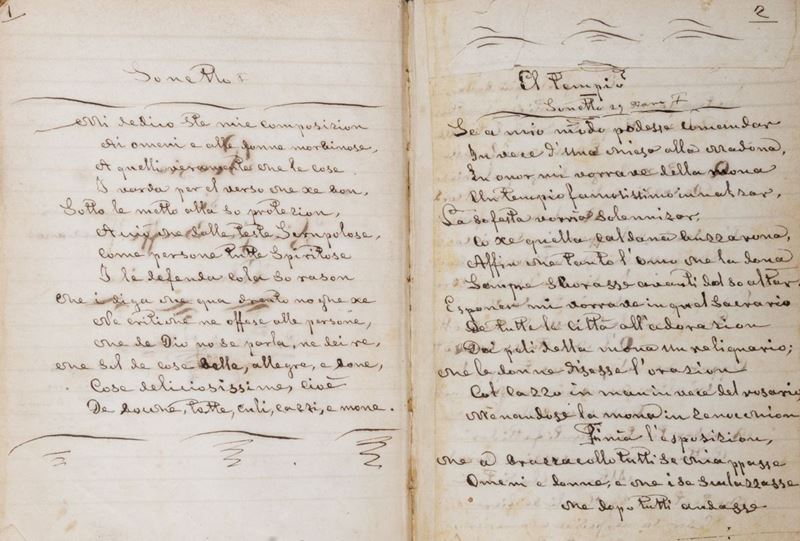 1
Sonetto
Mi dedico ste mie composizion
Ai omeni e alle done morbinose,
A quelli che le cose
I varda per el verso che xe bon,
Sotto le metto alla so protezion,
A chi che dalle teste Scrupolose,
Come persone tutte Spiritose
I le defenda cola so rason
Che i diga che qua drento no ghe xe
Ne critiche ne offese alle persone,
Che de Dio no se parla, ne dei re,
Che sol de cose belle, allegre, e bone,
Cose deliciosissime, cioè
De bocche, tette, culi, cazzi, e mone.
2
El tempio
Sonetto
Se a mio modo podesse comandar
In vece d'una chiesa alla madona,
In onor mi vorrave della mona
Un tempio famosissimo inalzar,
La so festa vorria solennizar,
Co xe quella caldana buzzarona,
Affin che tanto l'omo che la dona
Sempre sborasse avanti del so altar.
Esponer mi vorrave in quel Sacrario
De tutte le città all'adorazion
Dei peli della mona un reliquario;
Che le donne disesse l'orazion
Col cazzo in man in vece del rosario
Menandose la mona in zenocchion
Finia l'esposizion,
Che a brazzacollo tutti se chiappasse
Omeni e donne, e che i se sculazzasse
Che dopo tutti andasse